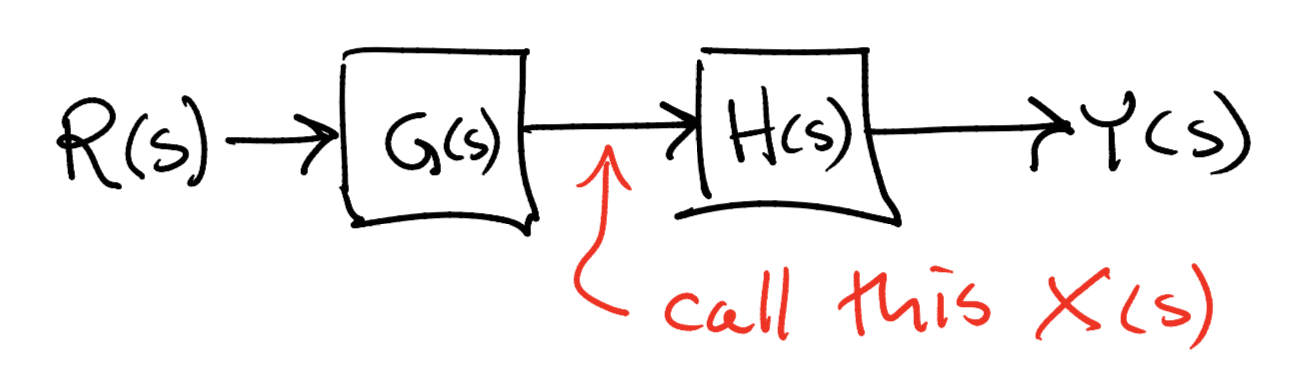 R(s) G(s) H(s) Y(s)
call this X(s)